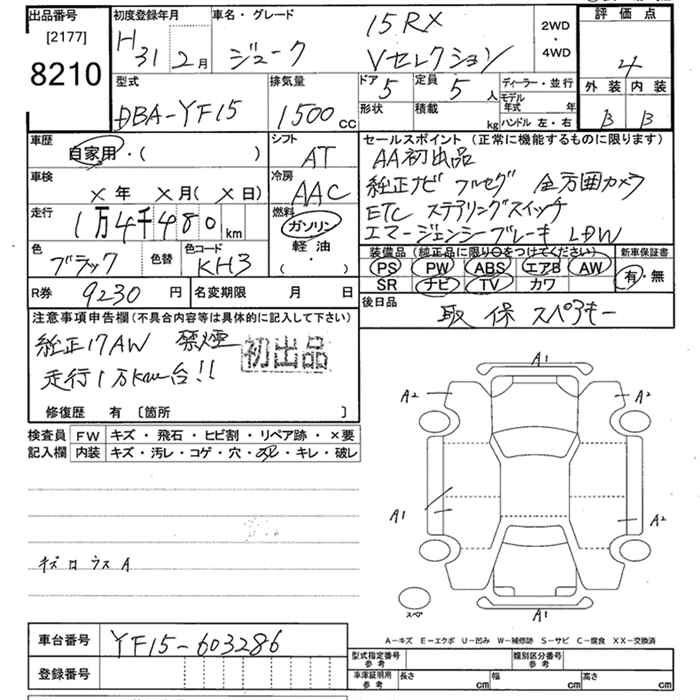 出品番号
[2177]
8210
初度登録年月
H31 2月
車名・グレード
15RX
ジューク Vセレクション
2WD
・
4WD
評価点
4
外装 内装
B B
型式
DBA-YF15
排気量
1500 cc
ドア 5
定員 5 人
形状
積載 kg
ディーラー・並行
モデル年式 年
ハンドル 左・右
車歴
自家用・( )
シフト
AT
車検
× 年 × 月(× 日)
冷房
AAC
走行
1万4千480 km
燃料
ガソリン
軽油
( ・ )
色
ブラック
色替
色コード
KH3
R券 9230 円
名変期限 月 日
セールスポイント (正常に機能するものに限ります)
AA初出品
純正ナビ フルセグ 全方囲カメラ
ETC ステアリングスイッチ
エマージェンシーブレーキ LDW
装備品 (純正品に限り○をつけてください)
PS PW ABS エアB AW
SR ナビ TV カワ
新車保証書
有・無
後日品
取 保 スペアキー
注意事項申告欄(不具合内容等は具体的に記入して下さい)
純正17AW 禁煙
初出品
走行1万km台!!
修復歴 有 〔箇所 〕
検査員記入欄
FW キズ・飛石・ヒビ割・リペア跡・×要
内装 キズ・汚レ・コゲ・穴・スレ・キレ・破レ
A1
A2
A2
A1
A2
A1
スペア
A-キズ E-エクボ U-凹み W-補修跡 S-サビ C-腐食 XX-交換済
車台番号 YF15-603286
登録番号
型式指定番号 参考
類別区分番号 参考
車庫証明用 参考
長さ cm
幅 cm
高さ cm